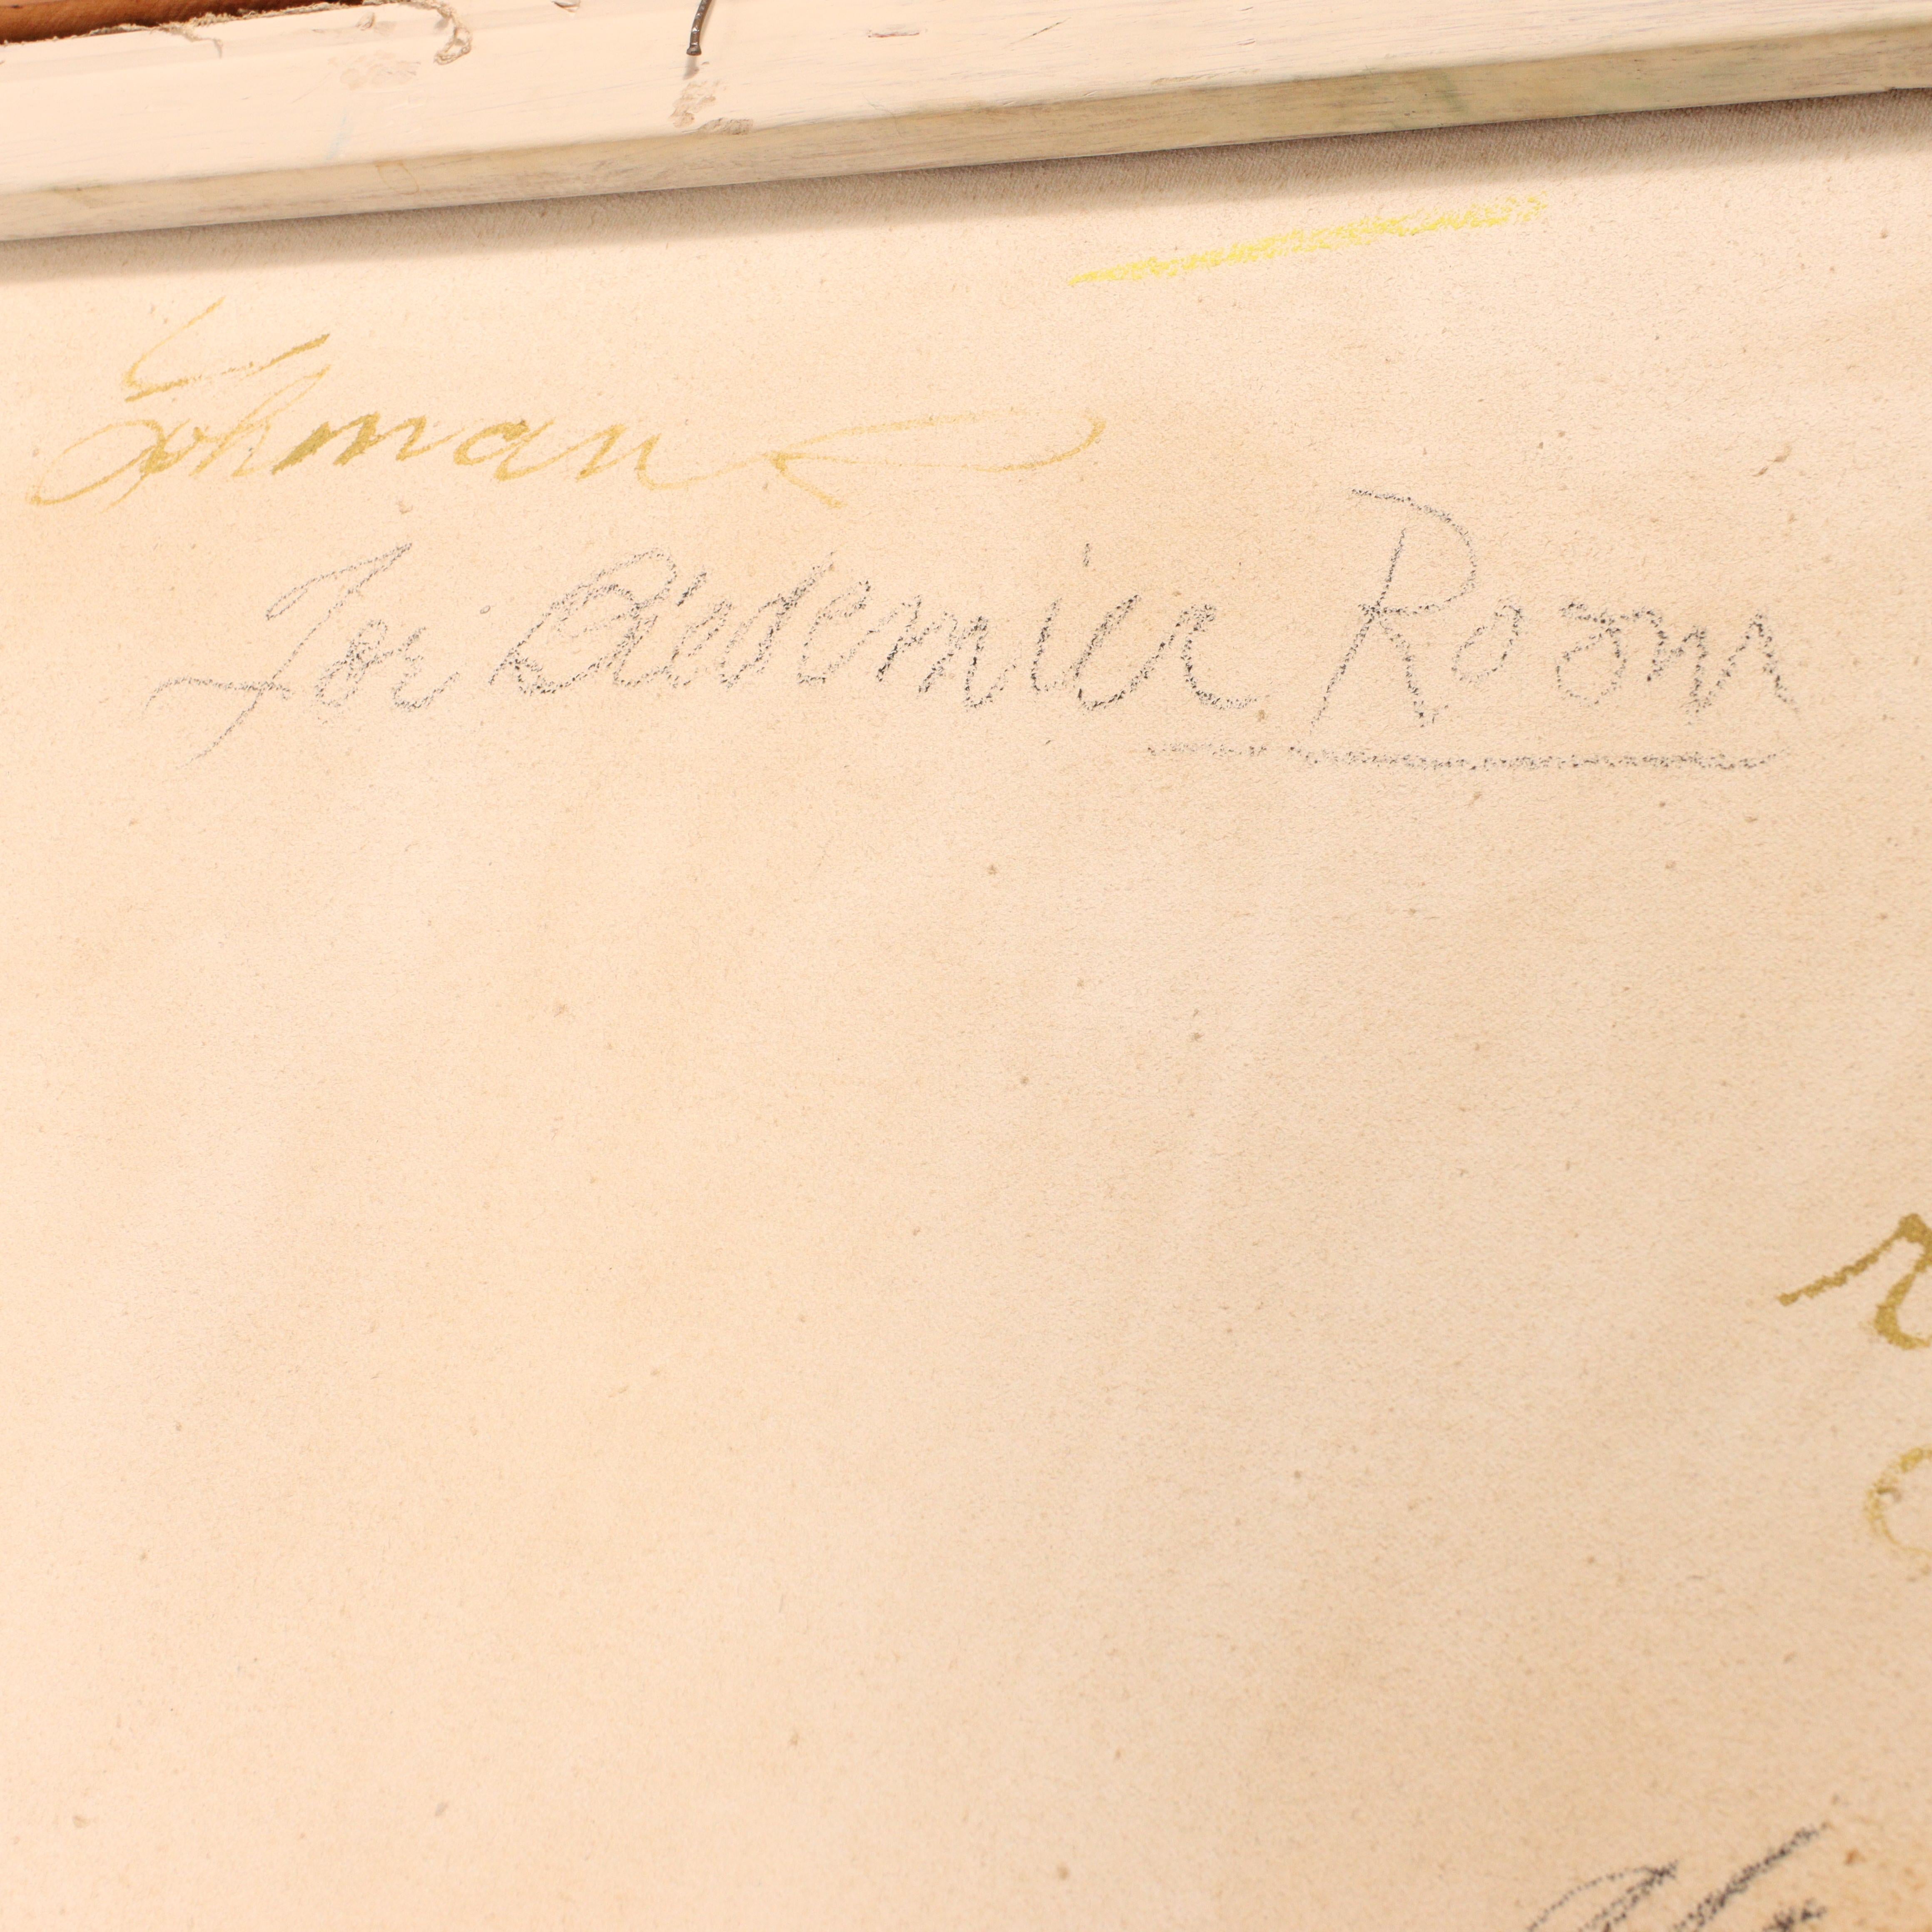 Lohman
For Biedermier Room